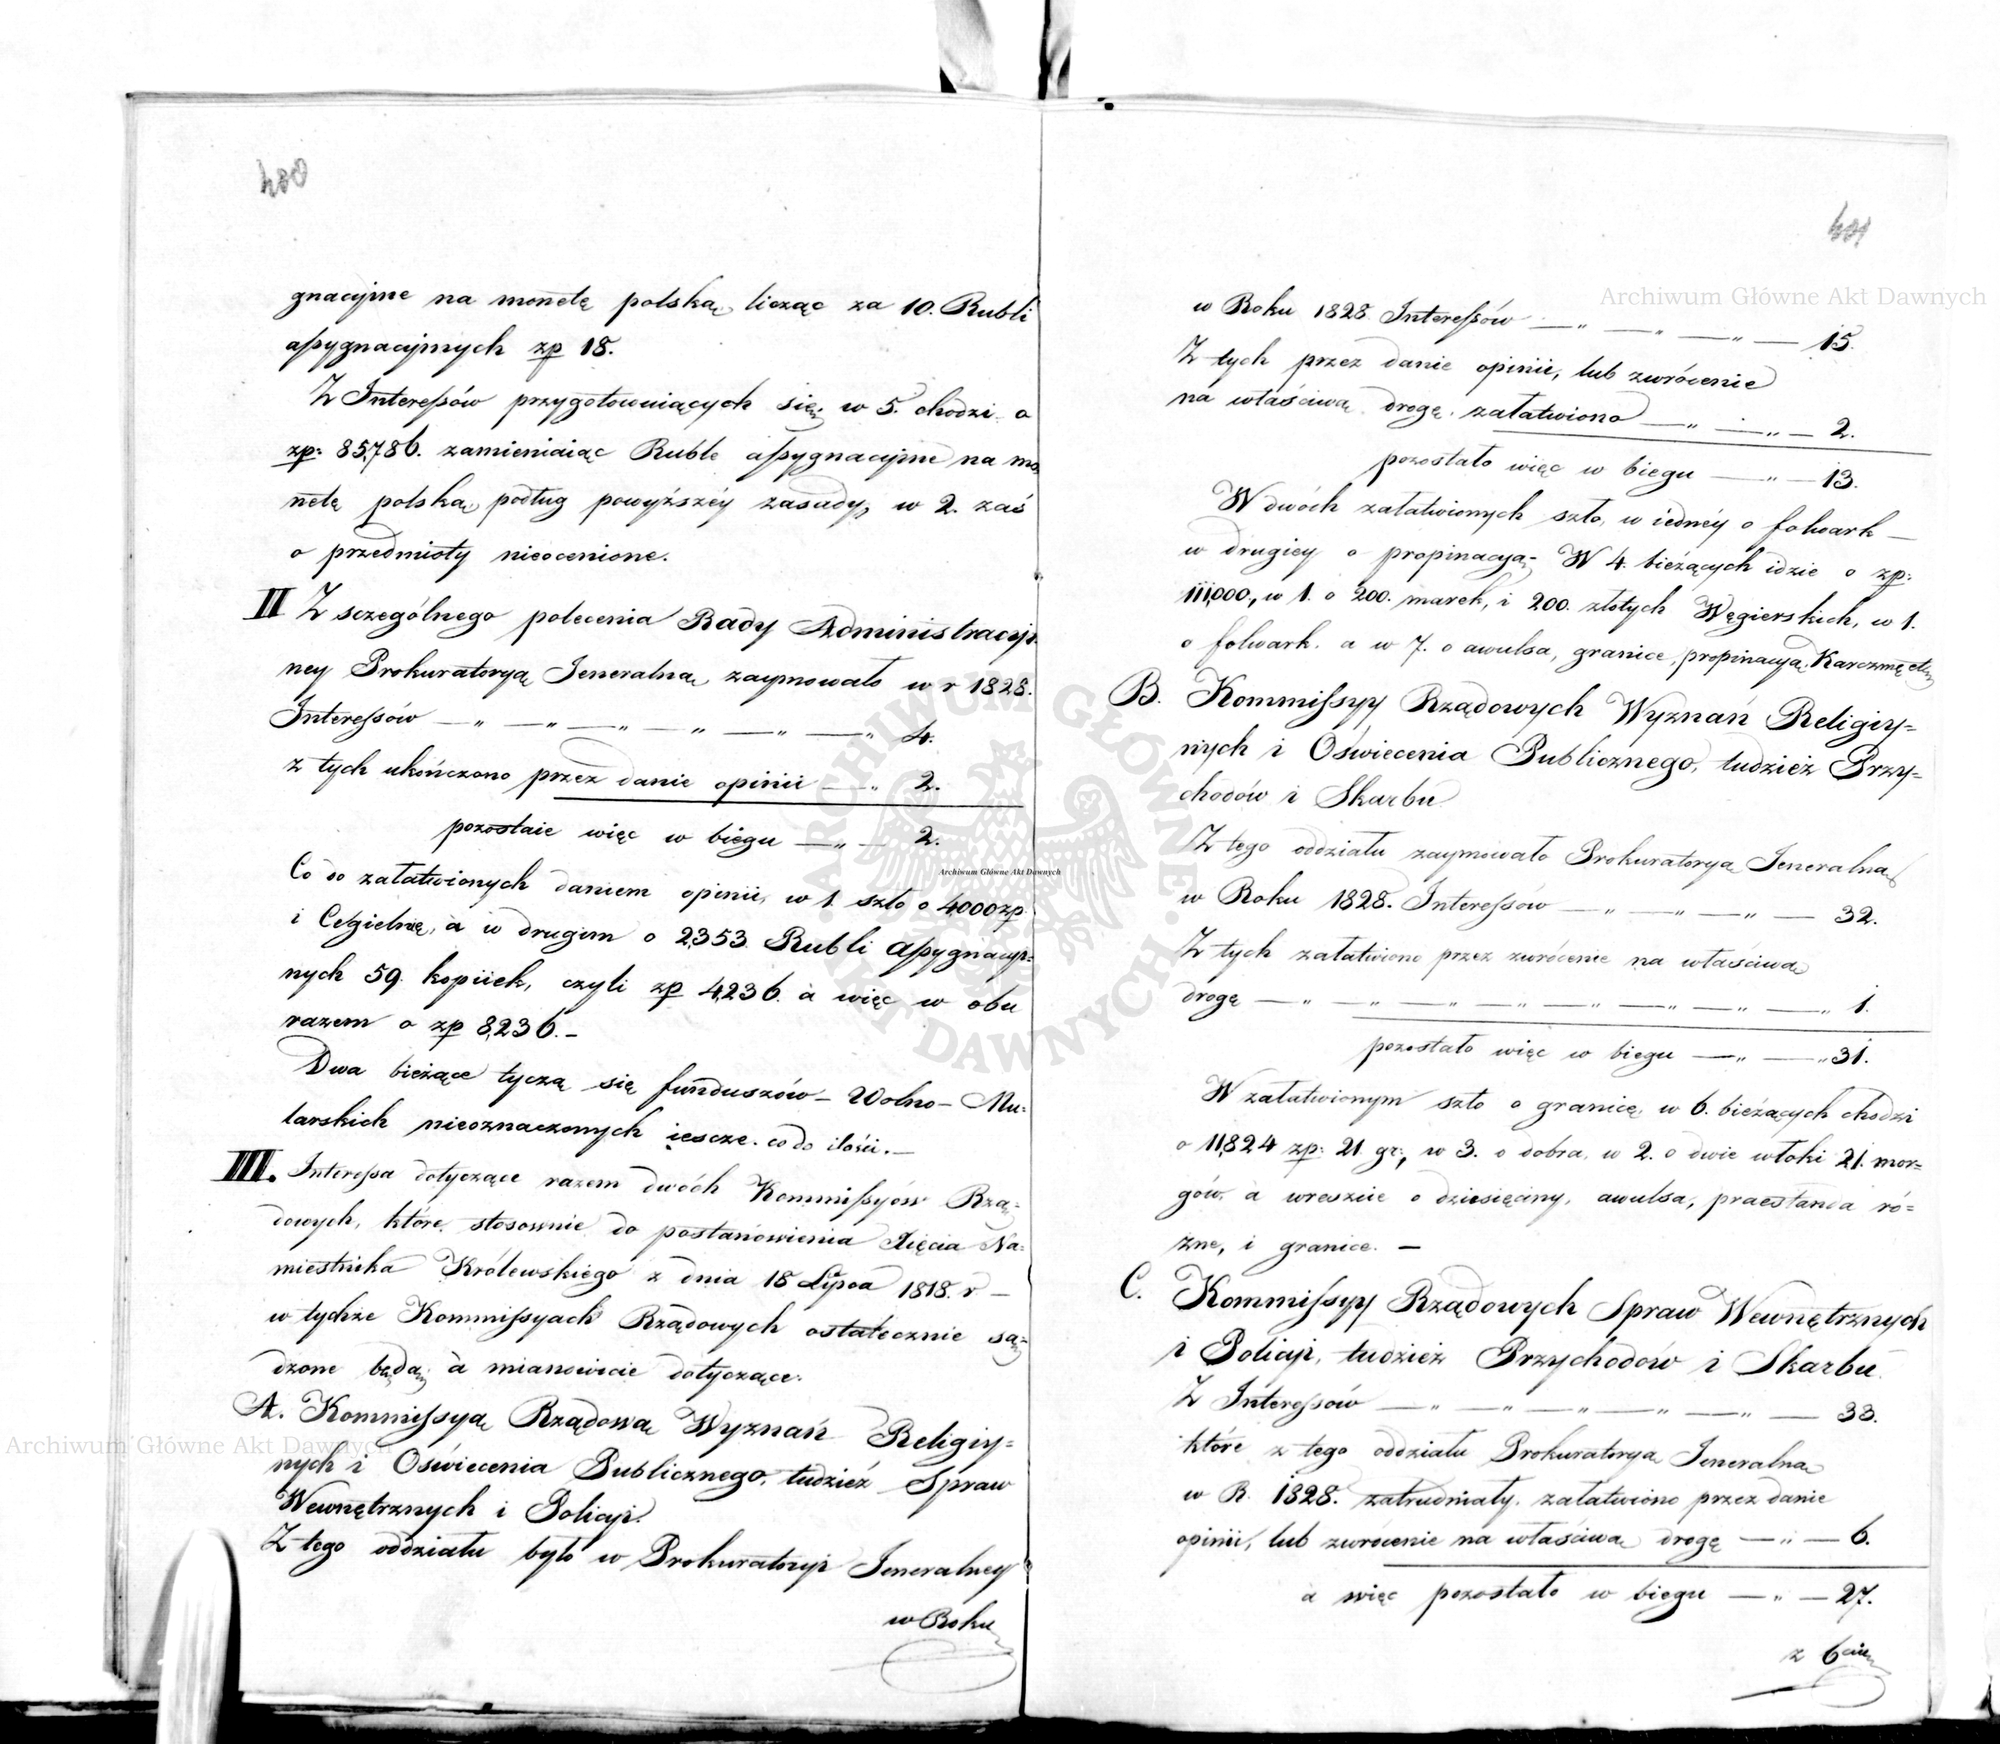 400
gnacyjne na monetę polską, licząc za 10. Rubli
assygnacyjnych zp 18.
Z Interessów przygotowuiących się, w 5. chodzi o
zp: 85,786. zamieniaiąc Ruble assygnacyjne na mo
netę polską podług powyższéy zasady, w 2. zaś
o przedmioty nieocenione.
II Z sczególnego polecenia Rady Administracyi-
ney Prokuratoryą Jeneralną zaymowało w r 1828.
Interessów — „ — „ — „ — „ — „ — „ 4.
z tych ukończono przez danie opinii — „ 2.
pozostaie więc w biegu — „ — 2.
Co do załatwionych daniem opinii, w 1. szło o 4000 zp
i Cegielnię, a w drugim o 2,353. Rubli Assygnacyi-
nych 59. kopiiek, czyli zp 4,236. a więc w obu
razem o zp 8,236. –
Dwa bieżące tyczą się funduszów – Wolno – Mu-
larskich nieoznaczonych iescze. co do ilości. —
III. Interessa dotyczące razem dwóch Kommissyów Rzą-
dowych, które stosownie do postanowienia Xięcia Na-
miestnika Królewskiego z dnia 18 Lipca 1818. r –
w tychże Kommissyach Rządowych ostatecznie są-
dzone będą, a mianowicie dotyczące:
A. Kommissyą Rządową Wyznań Religiy-
nych i Oświecenia Publicznego, tudzież Spraw
Wewnętrznych i Policyi.
Z tego oddziału było w Prokuratoryi Jeneralney
w Roku
401
w Roku 1828. Interessów — „ — „ — „ — 15.
Z tych przez danie opinii, lub zwrócenie
na właściwą drogę, załatwiono — „ — „ — 2.
pozostało więc w biegu — „ — 13.
W dwóch załatwionych szło, w iednéy o folwark —
w drugiey o propinacyą – W 4. bieżących idzie o zp:
111,000., w 1. o 200. marek, i 200. złotych Węgierskich, w 1.
o folwark. a w 7. o awulsa, granice, propinacyą, Karczmę etc
B. Kommissyy Rządowych Wyznań Religiy-
nych i Oświecenia Publicznego, tudzież Przy-
chodów i Skarbu
Z tego oddziału zaymowało Prokuratoryą Jeneralną
w Roku 1828. Interessów — „ — „ — „ — 32.
Z tych załatwiono przez zwrócenie na właściwą
drogę — „ — „ — „ — „ — „ — „ — „ — „ 1.
pozostało więc w biegu — „ — „ 31.
W załatwionym szło o granicę, w 6. bieżących chodzi
o 11,824 zp: 21. gr:, w 3. o dobra, w 2. o dwie włoki 21. mor-
gów, a wreszcie o dziesięciny, awulsa, praestanda ró-
żne, i granice. —
C. Kommissyy Rządowych Spraw Wewnętrznych
i Policyi, tudzież Przychodów i Skarbu.
Z Interessów — „ — „ — „ — „ — „ — 33.
które z tego oddziału Prokuratoryą Jeneralną
w R. 1828. zatrudniały, załatwiono przez danie
opinii, lub zwrócenie na właściwą drogę — „ — 6.
a więc pozostało w biegu — „ — 27.
z 6ciu
Archiwum Główne Akt Dawnych
Archiwum Główne Akt Dawnych
Archiwum Główne Akt Dawnych
ARCHIWUM GŁÓWNE AKT DAWNYCH